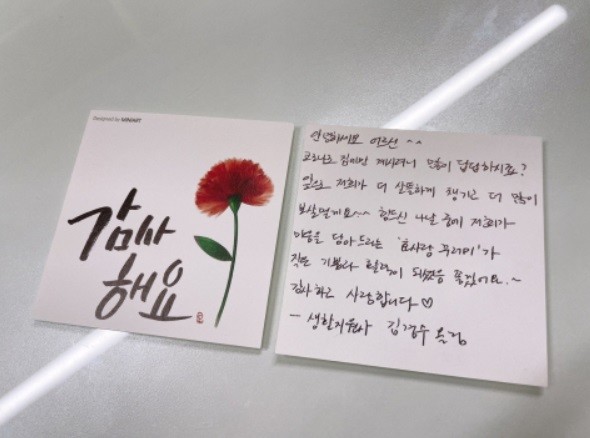 Designed by MINIART
감사
해요
안녕하세요 어르신 ^^
코로나로 집에만 계시려니 많이 답답하시죠?
앞으로 저희가 더 살뜰하게 챙기고 더 많이
보살필게요~~ 힘드신 나날 중에 저희가
마음을 담아 드리는 '효사랑 꾸러미'가
작은 기쁨과 활력이 되었음 좋겠어요.~
감사하고 사랑합니다♡
- 생활지원사 김경수 올림